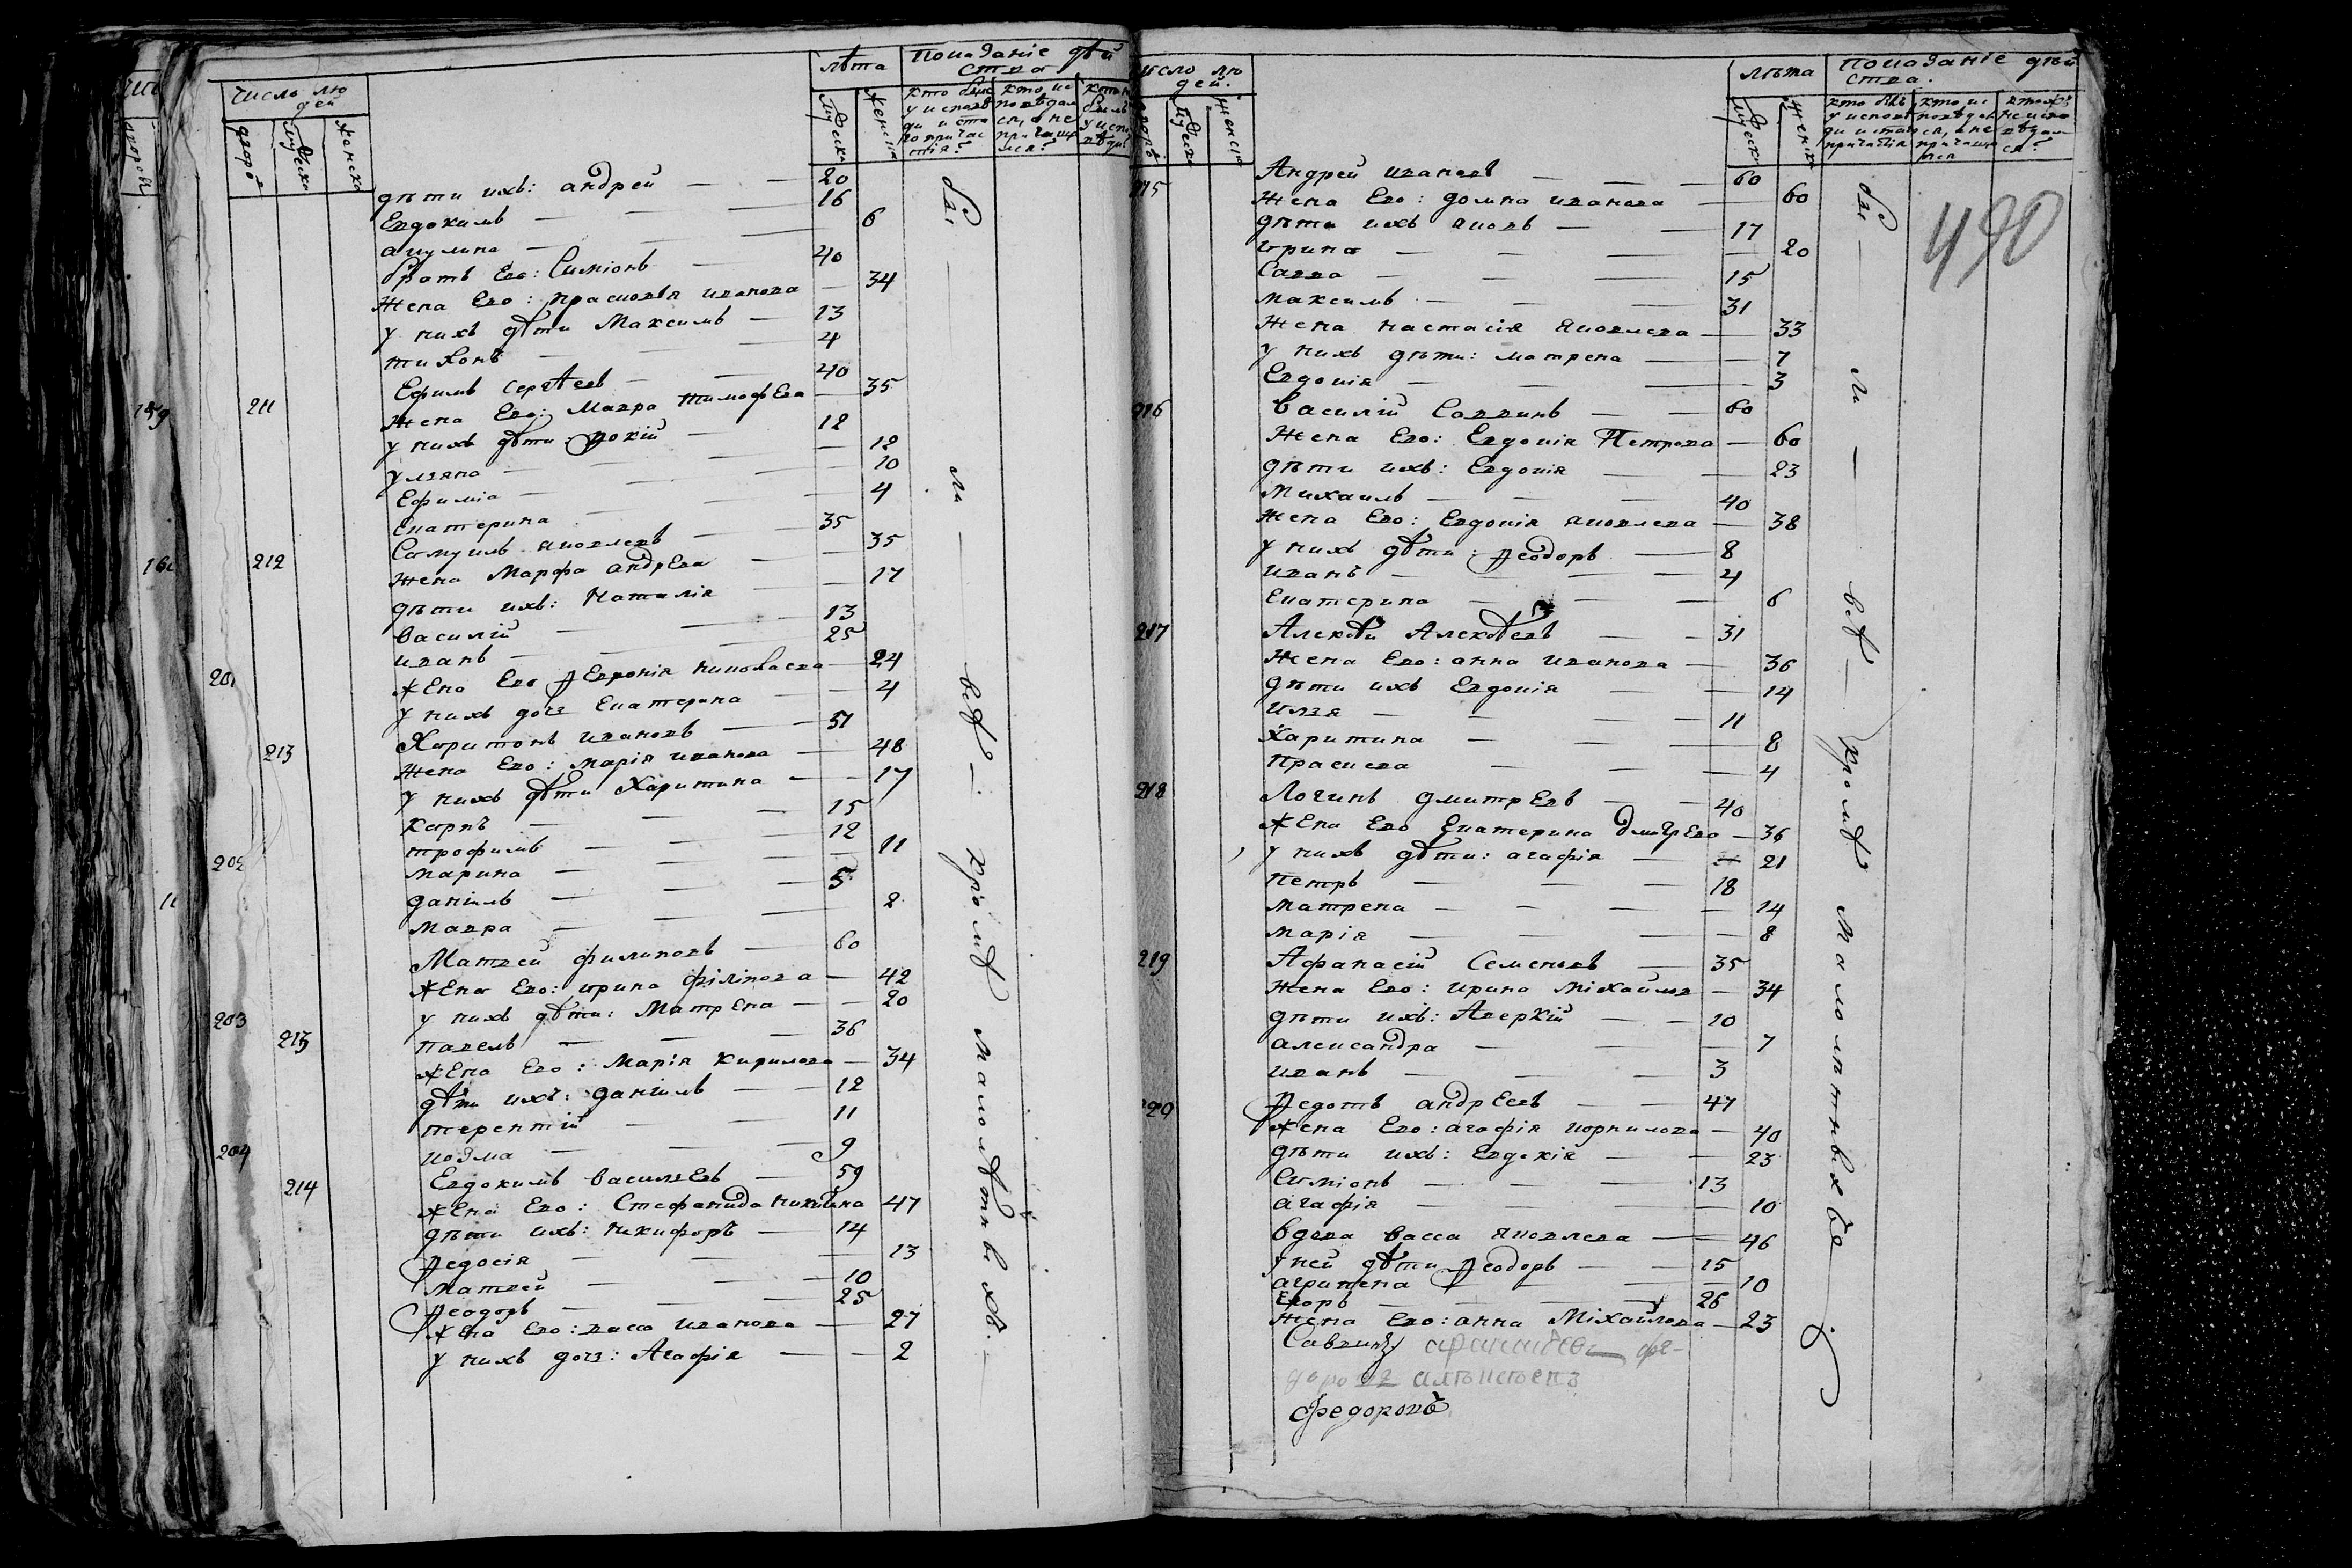 число лю
дей
дворо
мужеска
женска
лѣта
мужеска
женска
показаніе дѣй
ства
кто былъ
у исповѣ
ди и св:та
го причас
тія?
кто ис
повѣдал
ся, а не
причащал
ся?
дѣти ихъ: андрей — 20
Евдокимъ — 16
акулина — 6
братъ Его: Симіонъ — 40
Жена Его: прасковія иванова — 34
у нихъ дѣти Максимъ — 13
тихонъ — 4
211 Ефимъ сергѣевъ — 40
Жена Его: Мавра тимофѣева — 35
у нихъ дѣти: — 12
улзяна — 12
Ефиміа — 10
Екатерина — 4
212 Самуилъ яковлевъ — 35
Жена Марфа андрЕева — 35
дѣти ихъ: Наталія — 17
василій — 13
иванъ — 25
201 жЕна Его ѲЕвронія николаева — 24
у нихъ дочз Екатерина — 4
213 Харитонъ ивановъ — 51
Жена Его: Марія иванова — 48
у нихъ дѣти Харитина — 17
карпъ — 15
трофимъ — 12
202 Марина — 11
даніилъ — 5
мавра — 2
Матвей филиповъ — 60
жЕна Его: ирина філіпова — 42
у нихъ дѣти: МатрЕна — 20
203 213 павелъ — 36
жЕна Его: Марія Кирилова — 34
дѣти ихъ: даніилъ — 12
терентій — 11
козма — 9
204 214 Евдокимъ василзЕвъ — 59
жЕна Его: Стефанида никитина 47
дѣти ихъ: никифоръ — 14
Ѳедосія — 13
Матвей — 10
Ѳеодоръ — 25
жЕна Его: васса иванова — 27
у нихъ дочз: Агафія — 2
бы — ли — всѣ — кромѣ малолѣтнвхъ.
число лю
дей.
мужеска
женска
лѣта
мужеска
женска
показаніе дѣй
ства.
кто былъ
у исповѣ
ди и св:та
причастія
кто ис
повѣдал
ся, а не
причащал
ся
490
215 Андрей ивановъ — 60
Жена Его: домна иванова — 60
дѣти ихъ яковъ — 17
ирина — 20
Савва — 15
максимъ — 31
Жена настасія яковлева — 33
у нихъ дѣти: матрена — 7
Евдокія — 3
216 василій Саввинъ — 60
Жена Его: Евдокія Петрова — 60
дѣти ихъ: Евдокія — 23
Михаилъ — 40
Жена Его: Евдокія яковлева — 38
у нихъ дѣти: Ѳеодоръ — 8
иванъ — 4
Екатерина — 6
217 Алексѣй Алексѣевъ — 31
Жена Его: анна иванова — 36
дѣти ихъ Евдокія — 14
илзя — 11
Харитина — 8
Прасковa — 4
218 Логинъ дмитрЕвъ — 40
жЕна Его Екатерина дмитрЕва — 36
у нихъ дѣти: агафія — 21
петръ — 18
матрена — 14
марія — 8
219 Афанасій Семеновъ — 35
Жена Его: ирина Міхайлов — 34
дѣти ихъ: Аверкій — 10
александра — 7
иванъ — 3
220 Ѳедотъ андрЕевъ — 47
жена Его: агафія корнилова — 40
дѣти ихъ: Евдокія — 23
Симіонъ — 13
агафія — 10
вдова васса яковлева — 46
у ней дѣти Ѳеодоръ — 15
агрипена — 10
Егоръ — 26
Жена Его: анна Міхайлова — 23
Саввинз
Федоровъ
бы — ли — всѣ — кромѣ малолѣтнвхъ